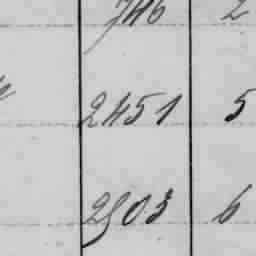 746 2
2451 5
2903 6